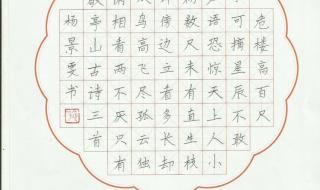 危楼高百尺
可摘星辰不敢
语恐惊天上人小
数尺来有直生核
傍边立看多长却
鸟高飞尽孤云独
相看两不厌只有
亭山古诗三首
杨景雯书